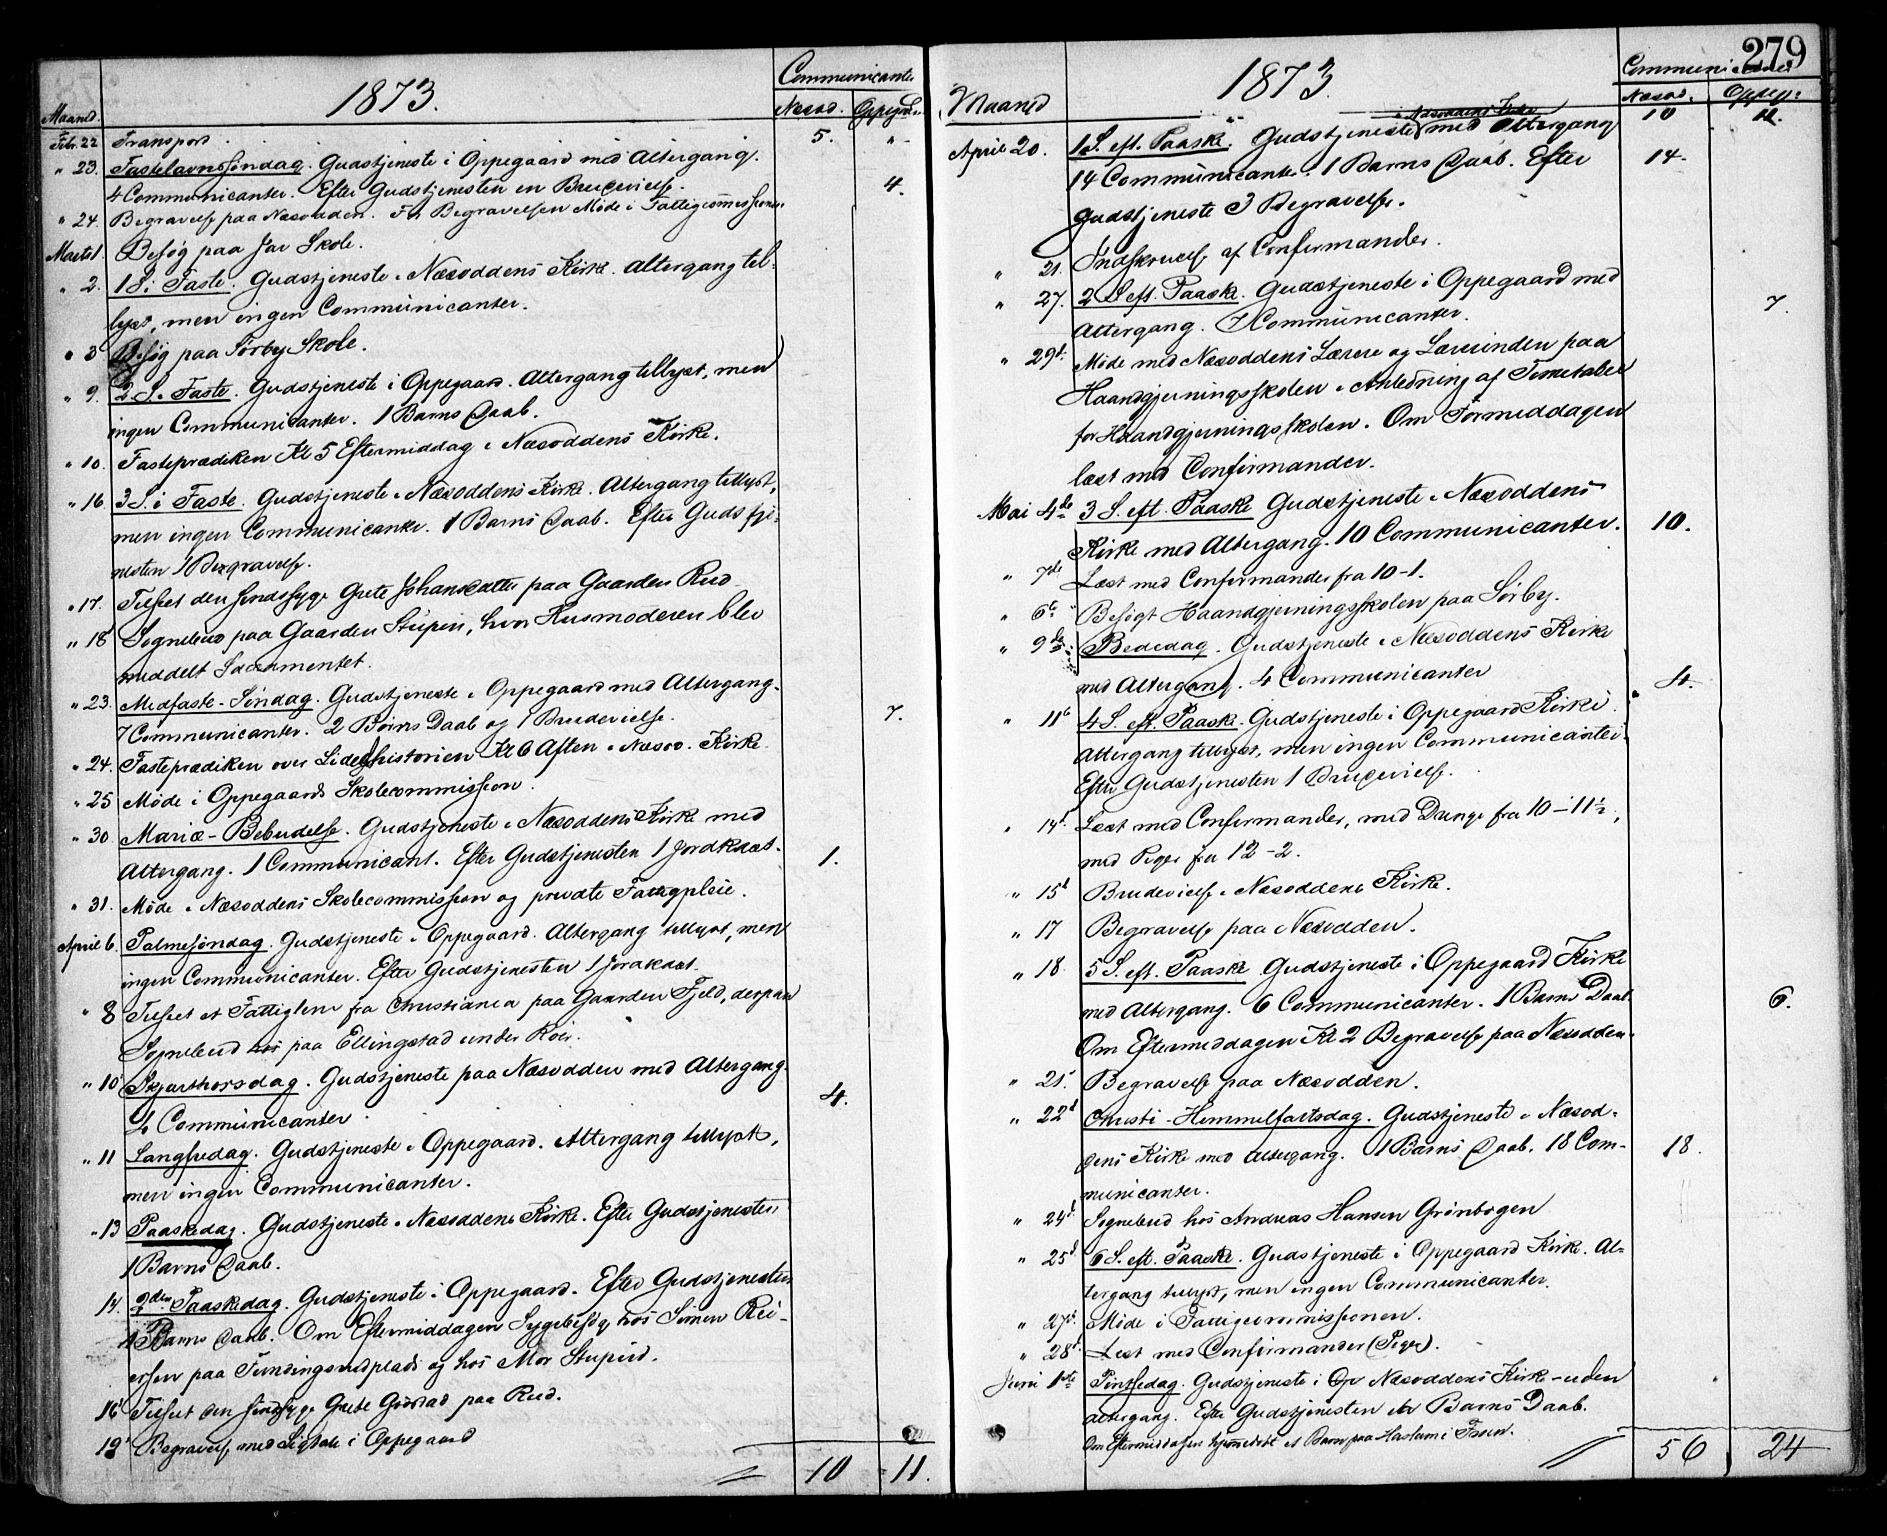 1873.
Communicanter
Maaned.
Næsod. Oppegaard
Febr. 22 Transport 5. " -
" 23. Fastelavnssøndag. Gudstjeneste i Oppegaard med Altergang.
4 Communicanter. Efter Gudstjenesten en Brudevielse. 4.
" 24. Begravelse paa Næsodden. Før Begravelsen Møde i Fattigcommissionen
Marts 1. Besøg paa Jar Skole.
" 2. 1 S. i Faste. Gudstjeneste i Næsoddens Kirke. Altergang til-
lyst, men ingen Communicanter.
" 3 Besøg paa Sørby Skole.
" 9. 2 S. i Faste. Gudstjeneste i Oppegaard. Altergang tillyst, men
ingen Communicanter. 1 Barns Daab.
" 10. Fasteprædiken Kl 5 Eftermiddag i Næsoddens Kirke.
" 16 3 S. i Faste. Gudstjeneste i Næsoddens Kirke. Altergang tillyst,
men ingen Communicanter. 1 Barns Daab. Efter Gudstje-
nesten 1 Begravelse.
" 17. Tilseet den sindssyge Grete Johansdatter paa Gaarden Rud
" 18 Sognebud paa Gaarden Stupin, hvor Husmoderen blev
meddelt Sacramentet.
" 23. Midfaste-Søndag. Gudstjeneste i Oppegaard med Altergang.
7 Communicanter. 2 Børns Daab og 1 Brudevielse. 7.
" 24. Fasteprædiken over Lidelseshistorien Kl 6 Aften i Næsod. Kirke
" 25 Møde i Oppegaards Skolecommission.
" 30 Mariæ-Bebudelse. Gudstjeneste i Næsoddens Kirke med
Altergang. 1 Communicant. Efter Gudstjenesten 1 Jordkast. 1.
" 31. Møde i Næsoddens Skolecommission og private Fattigpleie.
April 6. Palmesøndag. Gudstjeneste i Oppegaard. Altergang tillyst, men
ingen Communicanter. Efter Gudstjenesten 1 Jordkast.
" 8 Tilseet et Fattiglem fra Christiania paa Gaarden Fjeld, derpaa
Sognebud hos paa Ellingstad under Roer.
" 10 Skjærthorsdag. Gudstjeneste paa Næsodden med Altergang.
4 Communicanter 4.
" 11 Langfredag. Gudstjeneste i Oppegaard. Altergang tillyst,
men ingen Communicanter.
" 13 Paaskedag. Gudstjeneste i Næsoddens Kirke. Efter Gudstjenesten
1 Barns Daab.
14. 2den Paaskedag. Gudstjeneste i Oppegaard. Efter Gudstjenesten
1 Barns Daab. Om Eftermiddagen Sygebesøg hos Simen Rei-
ersen paa plads og hos Mor Stupin.
16 Tilseet den sindssyge Grete paa Rud.
19 Begravelse med Ligtale i Oppegaard
10 11.
279
1873.
Communicanter
Maaned
Næsod. Oppeg:
10 11.
i Næsoddens Kirke
April 20. 1 S. eft. Paaske. Gudstjeneste med Altergang
14 Communicanter. 1 Barns Daab. Efter 14.
Gudstjeneste 3 Begravelser.
" 21. Indskrivelse af Confirmander.
" 27. 2 S. eft. Paaske. Gudstjeneste i Oppegaard med
Altergang. 7 Communicanter. 7.
" 29d: Møde med Næsoddens Lærere og Lærerinden paa
Haandgjerningsskolen i Anledning af Timetabel
for Haandgjerningsskolen. Om Formiddagen
læst med Confirmander.
Mai 4de 3 S. eft. Paaske Gudstjeneste i Næsoddens
Kirke med Altergang. 10 Communicanter. 10.
" 7de Læst med Confirmander fra 10-1.
" 6te Besøgt Haandgjerningsskolen paa Sørby.
" 9de Bededag. Gudstjeneste i Næsoddens Kirke
med Altergang. 4 Communicanter 4.
" 11te 4 S. eft. Paaske. Gudstjeneste i Oppegaard Kirke.
Altergang tillyst, men ingen Communicanter.
Efter Gudstjenesten 1 Brudevielse.
" 14d. Læst med Confirmander, med Drenge fra 10-11½,
med Piger fra 12-2.
" 15d Brudevielse i Næsoddens Kirke.
" 17 Begravelse paa Næsodden.
" 18. 5 S. eft. Paaske Gudstjeneste i Oppegaard Kirke
med Altergang. 6 Communicanter. 1 Barns Daab. 6.
Om Eftermiddagen Kl 2 Begravelse paa Næsodden.
" 21. Begravelse paa Næsodden.
" 22d Christi-Himmelfartsdag. Gudstjeneste i Næsod-
dens Kirke med Altergang. 1 Barns Daab. 18 Com- 18.
municanter.
" 24d. Sognebud hos Andreas Hansen Grønbogen
" 25d. 6 S. eft. Paaske. Gudstjeneste i Oppegaard Kirke. Al-
tergang tillyst, men ingen Communicanter.
" 27d. Møde i Fattigcommissionen.
" 28d. Læst med Confirmander (Piger).
Juni 1ste Pintsedag. Gudstjeneste i Op Næsoddens Kirke - uden
altergang. Efter Gudstjenesten Barns Daab.
Om Eftermiddagen hjemmedøbt et Barn paa Haslum i
56 24